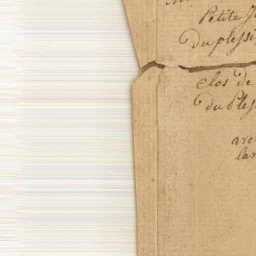 Petite
du plessi
clos de
du Ples
ave
lar